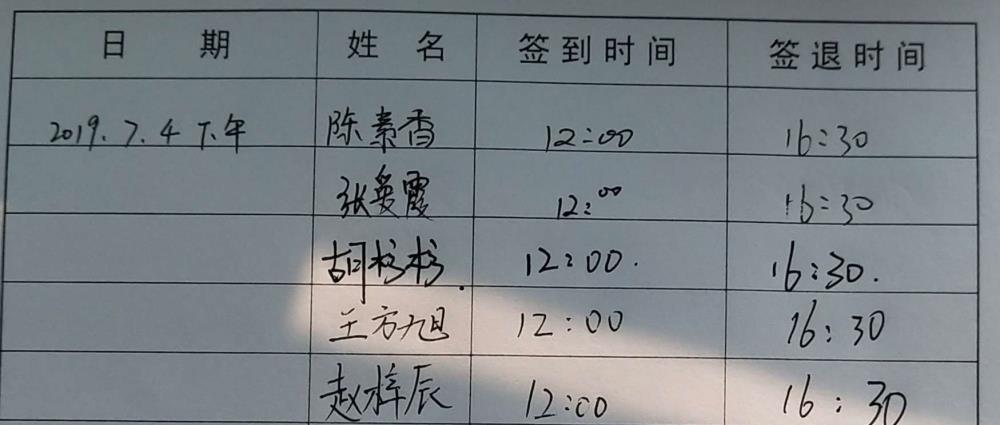 日 期 姓 名 签到时间 签退时间
2019.7.4 下午 陈素香 12:00 16:30
张爱霞 12:00 16:30
胡杉杉. 12:00. 16:30.
王方旭 12:00 16:30
赵梓辰 12:00 16:30